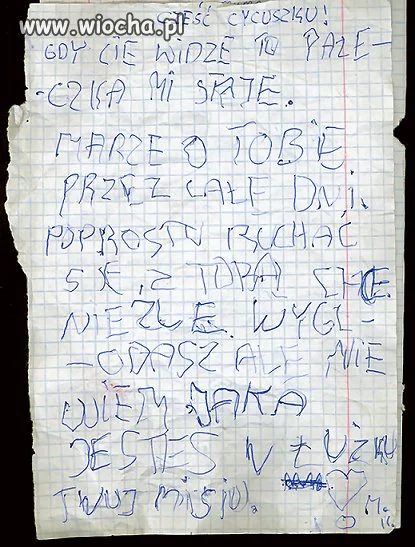 www.wiocha.pl
CZEŚĆ CYCUSZKU!
GDY CIE WIDZE TO PAŁE-
-CZKA MI STAJE.
MARZE O TOBIE
PRZEZ CAŁE DNI.
POPROSTU RUCHAĆ
SIE Z TOBĄ CHCE.
NIEZLE WYGL-
-ODASZ ALE NIE
WIEM JAKA
JESTES W ŁUŻKU
TWUJ MISIU.